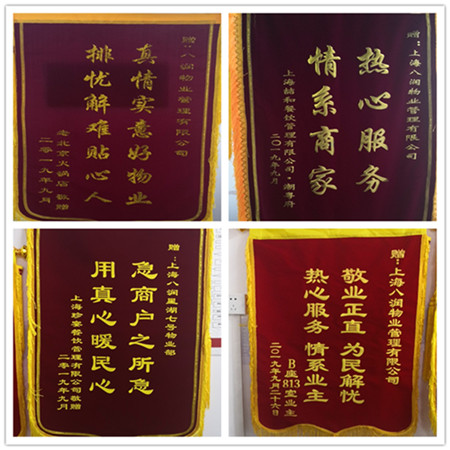 赠:八润物业管理有限公司
真情实意好物业
排忧解难贴心人
老北京火锅店敬赠
二〇一九年九月
赠:上海八润物业管理有限公司
热心服务
情系商家
上海喆和餐饮管理有限公司·潮粤府
二〇一九年九月
赠:上海八润星湖七号物业部
急商户之所急
用真心暖民心
上海珍宴餐饮管理有限公司敬赠
二零一九年九月
赠:上海八润物业管理有限公司
敬业正直 为民解忧
热心服务 情系业主
B座813室业主
二〇一九年九月二十六日